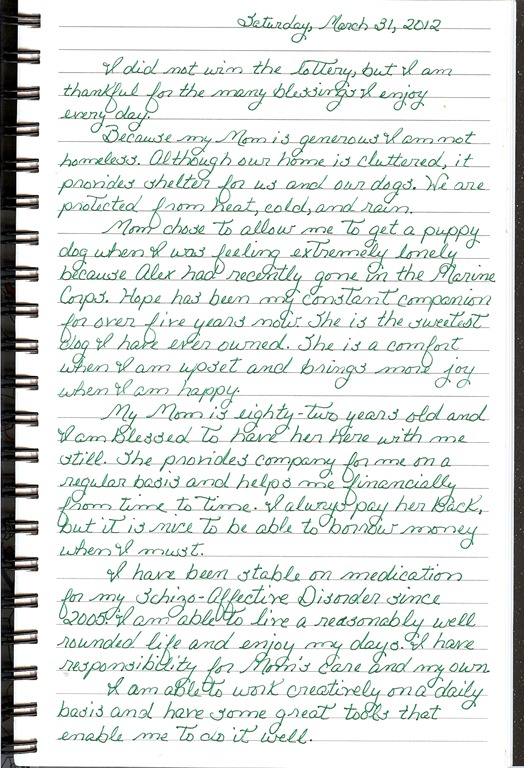 Saturday, March 31, 2012
I did not win the lottery, but I am
thankful for the many blessings I enjoy
every day.
Because my Mom is generous I am not
homeless. Although our home is cluttered, it
provides shelter for us and our dogs. We are
protected from heat, cold, and rain.
Mom chose to allow me to get a puppy
dog when I was feeling extremely lonely
because Alex had recently gone in the Marine
Corps. Hope has been my constant companion
for over five years now. She is the sweetest
dog I have ever owned. She is a comfort
when I am upset and brings more joy
when I am happy.
My Mom is eighty-two years old and
I am Blessed to have her here with me
still. She provides company for me on a
regular basis and helps me financially
from time to time. I always pay her back,
but it is nice to be able to borrow money
when I must.
I have been stable on medication
for my Schizo-Affective Disorder since
2005. I am able to live a reasonably well
rounded life and enjoy my days. I have
responsibility for Mom's care and my own.
I am able to work creatively on a daily
basis and have some great tools that
enable me to do it well.